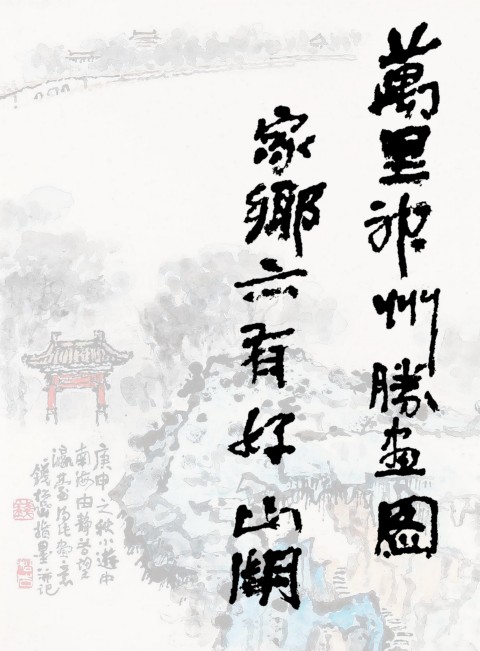 萬里神州勝畫圖
家鄉亦有好山湖
庚申之秋小遊中
南海由靜谷望
瀛臺
錢松喦指墨並記